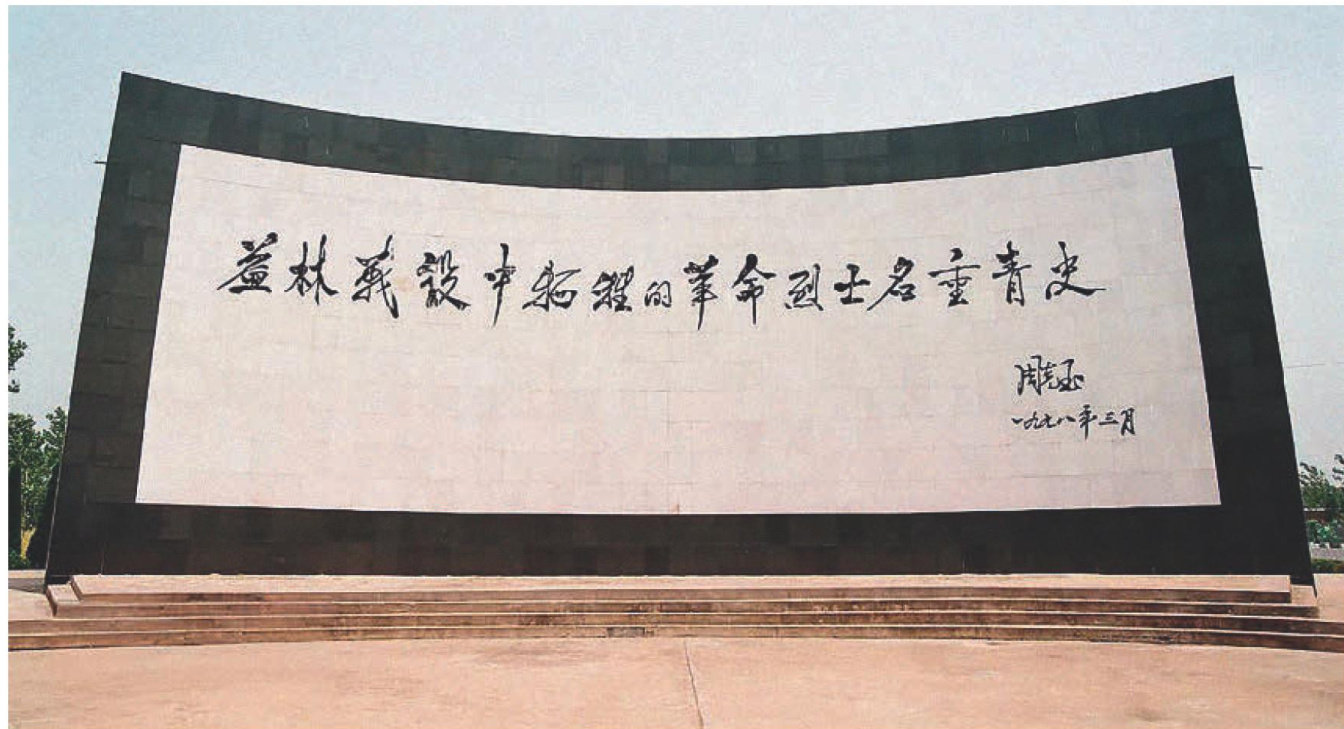 益林战役中牺牲的革命烈士名垂青史
周克玉
一九七八年三月